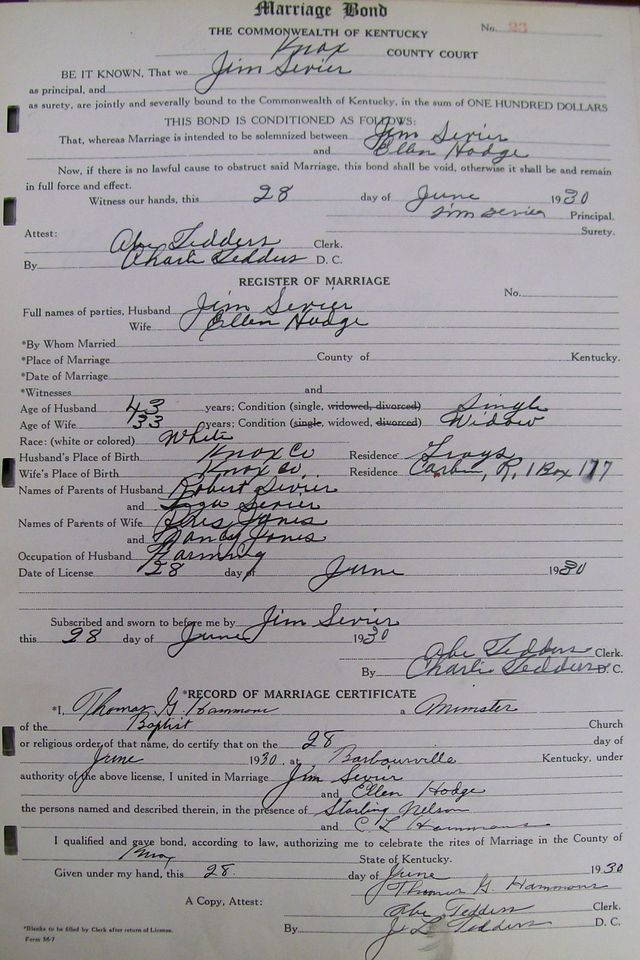 Marriage Bond
No. 23
THE COMMONWEALTH OF KENTUCKY
Knox COUNTY COURT
BE IT KNOWN, That we Jim Sevier
as principal, and
as surety, are jointly and severally bound to the Commonwealth of Kentucky, in the sum of ONE HUNDRED DOLLARS
THIS BOND IS CONDITIONED AS FOLLOWS:
That, whereas Marriage is intended to be solemnized between Jim Sevier
and Ellen Hodge
Now, if there is no lawful cause to obstruct said Marriage, this bond shall be void, otherwise it shall be and remain
in full force and effect.
Witness our hands, this 28 day of June 1930
Jim Sevier Principal.
Surety.
Attest: Abe Tedders Clerk.
By Charli Tedders D. C.
REGISTER OF MARRIAGE
No.
Full names of parties, Husband Jim Sevier
Wife Ellen Hodge
*By Whom Married
*Place of Marriage County of Kentucky.
*Date of Marriage
*Witnesses and
Age of Husband 43 years; Condition (single, widowed, divorced) Single
Age of Wife 33 years; Condition (single, widowed, divorced) Widow
Race: (white or colored) White
Husband's Place of Birth Knox Co Residence Grays
Wife's Place of Birth Knox Co, Residence Corbin, R. 1 Box 177
Names of Parents of Husband Robert Sevier
and Sevier
Names of Parents of Wife Jones
and Nancy Jones
Occupation of Husband Farming
Date of License 28 day of June 1930
Subscribed and sworn to before me by Jim Sevier
this 28 day of June 1930
Abe Tedders Clerk.
By Charli Tedders D. C.
*RECORD OF MARRIAGE CERTIFICATE
*I, Thomas G. Hammons a Minister
of the Baptist Church
or religious order of that name, do certify that on the 28 day of
June 1930, at Barbourville Kentucky, under
authority of the above license, I united in Marriage Jim Sevier
and Ellen Hodge
the persons named and described therein, in the presence of Starling Nelson
and C L Hammons
I qualified and gave bond, according to law, authorizing me to celebrate the rites of Marriage in the County of
Knox State of Kentucky.
Given under my hand, this 28. day of June 1930
Thomas G. Hammons
A Copy, Attest: Abe Tedders Clerk.
By J. L. Tedders D. C.
*Blanks to be filled by Clerk after return of License.
Form 56-7